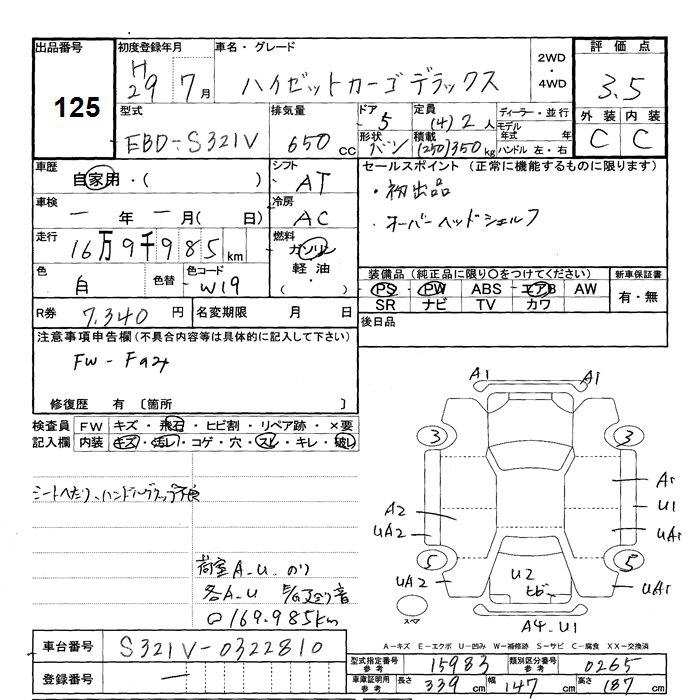 出品番号
125
初度登録年月
H29 7月
車名・グレード
ハイゼットカーゴデラックス
2WD
・
4WD
評価点
3.5
外装 内装
C C
型式
EBD-S321V
排気量
650 cc
ドア
5
形状
バン
定員
(4) 2 人
積載
(250) 350 kg
ディーラー・並行
モデル年式 年
ハンドル 左・右
車歴
自家用・( )
シフト
AT
車検
一年一月( 日)
冷房
AC
走行
16万9千985km
燃料
ガソリン
軽油
( )
色
白
色替
色コード
W19
セールスポイント (正常に機能するものに限ります)
・初出品
・オーバーヘッドシェルフ
装備品 (純正品に限り○をつけてください)
PS PW ABS エアB AW
SR ナビ TV カワ
新車保証書
有・無
R券 7,340 円
名変期限 月 日
後日品
注意事項申告欄(不具合内容等は具体的に記入して下さい)
修復歴 有 〔箇所 〕
検査員記入欄
FW キズ・飛石・ヒビ割・リペア跡・×要
内装 キズ・汚レ・コゲ・穴・スレ・キレ・破レ
シートへたり、ハンドルグリップ不良
荷室A.U のり
各A.U
169.985km
A1 A1
3 3
A1
U1
A2
UA2 UA1
5 5
UA2 UA1
U2
ヒビ
スペア
A4.U1
A-キズ E-エクボ U-凹み W-補修跡 S-サビ C-腐食 XX-交換済
車台番号 S321V-0322810
登録番号 一
型式指定番号 参考 15983
類別区分番号 参考 0265
車庫証明用 参考 長さ 339 cm 幅 147 cm 高さ 187 cm